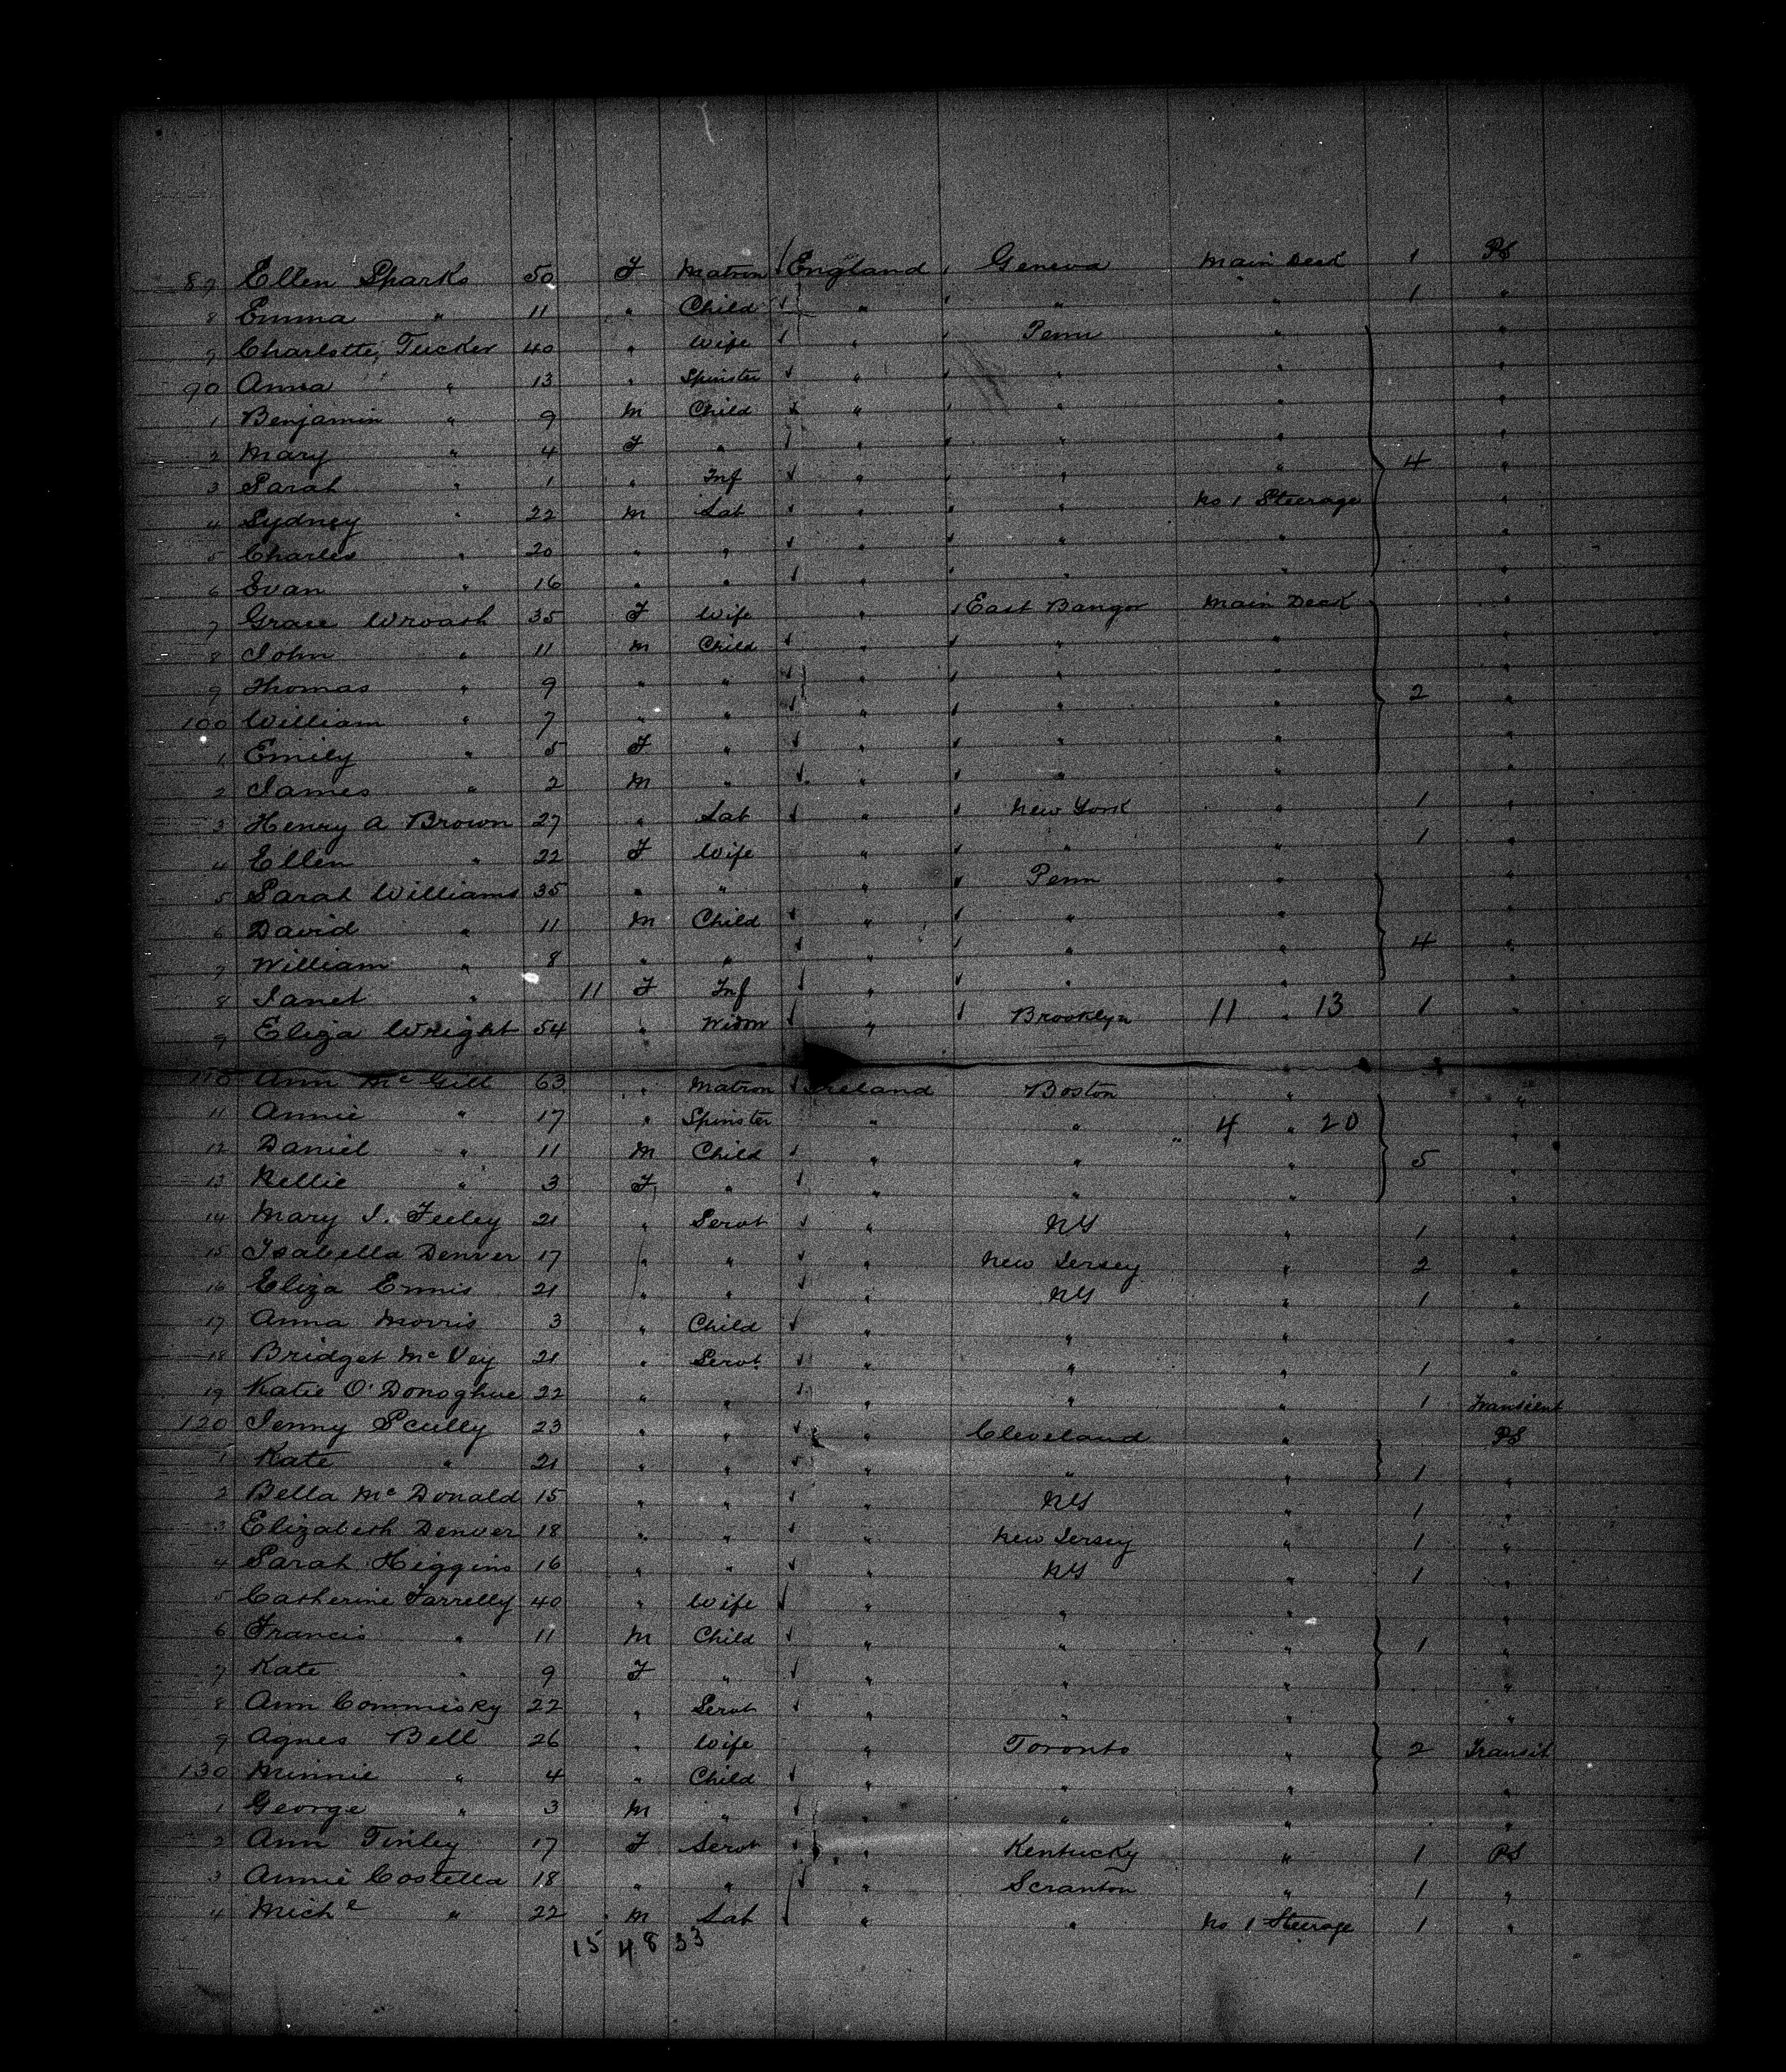 87 Ellen Sparks 50 F Matron England Geneva Main Deck 1 PS
8 Emma " 11 " Child " " " 1 "
9 Charlotte Tucker 40 " Wife " Penn " "
90 Anna " 13 " Spinster " " " "
1 Benjamin " 9 M Child " " " "
2 Mary " 4 F " " " " "
3 Sarah " 1 " Inf " " " 4 "
4 Sydney " 22 M Lab " " No 1 Steerage "
5 Charles " 20 " " " " " "
6 Evan " 16 " " " " " "
7 Grace Wroath 35 F Wife " East Bangor Main Deck "
8 John " 11 M Child " " " "
9 Thomas " 9 " " " " " "
100 William " 7 " " " " " 2 "
1 Emily " 5 F " " " " "
2 James " 2 M " " " " "
3 Henry A Brown 27 " Lab " New York " 1 "
4 Ellen " 22 F Wife " " " 1 "
5 Sarah Williams 35 " " " Penn " "
6 David " 11 M Child " " " "
7 William " 8 " " " " " 4 "
8 Janet " 11 F Inf " " " "
9 Eliza Wright 54 " Widow " Brooklyn 11 " 13 1 "
110 Ann McGill 63 " Matron Ireland Boston " "
11 Annie " 17 " Spinster " " " 4 " 20 "
12 Daniel " 11 M Child " " " 5 "
13 Nellie " 3 F " " " " "
14 Mary J. Feeley 21 " Servt " NY " 1 "
15 Isabella Denver 17 " " " New Jersey " 2 "
16 Eliza Ennis 21 " " " NY " 1 "
17 Anna Morris 3 " Child " " " "
18 Bridget McVey 21 " Servt " " " 1 "
19 Katie O'Donoghue 22 " " " " " 1 Transient
120 Jenny Scully 23 " " " Cleveland " PS
1 Kate " 21 " " " " " 1 "
2 Bella McDonald 15 " " " NY " 1 "
3 Elizabeth Denver 18 " " " New Jersey " 1 "
4 Sarah Higgins 16 " " " NY " 1 "
5 Catherine Farrelly 40 " Wife " " " "
6 Francis " 11 M Child " " " 1 "
7 Kate " 9 F " " " " "
8 Ann Commisky 22 " Servt " " " "
9 Agnes Bell 26 " Wife " Toronto " 2 Transit
130 Minnie " 4 " Child " " " "
1 George " 3 M " " " " "
2 Ann Finley 17 F Servt " Kentucky " 1 PS
3 Annie Costella 18 " " " Scranton " 1 "
4 Miche " 22 M Lab " " No 1 Steerage 1 "
15 48 33